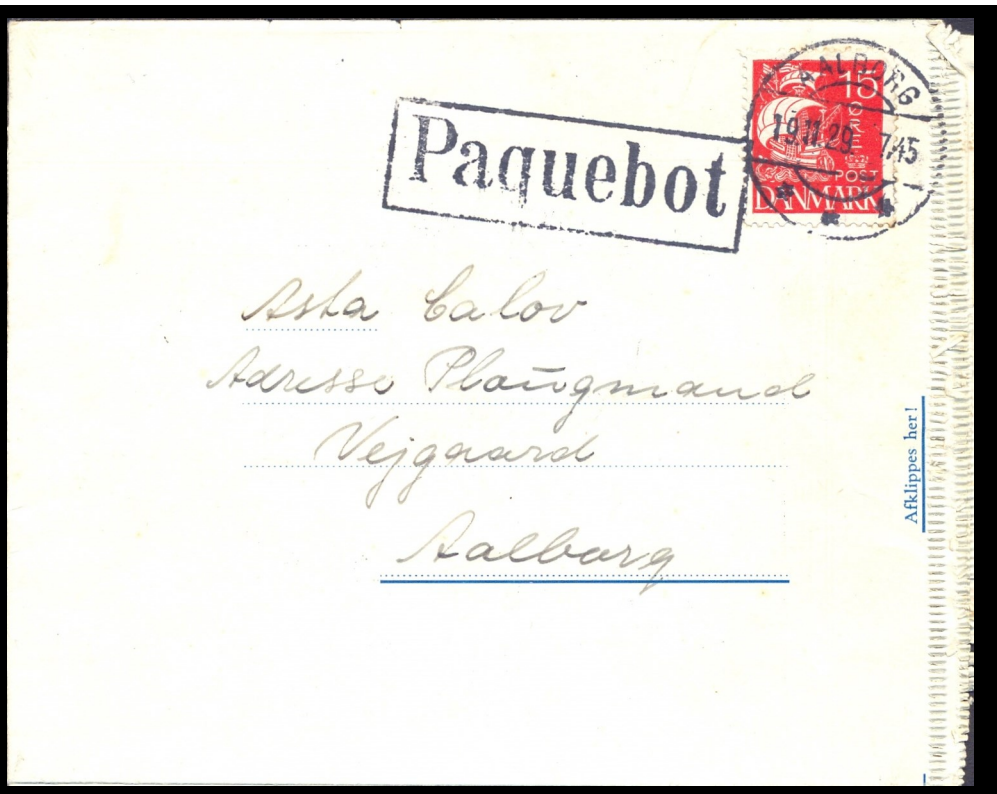 Paquebot
AALBORG
19.11.29. 7,45
15
ØRE
POST
DANMARK
Asta Calov
Adresse Plougmand
Vejgaard
Aalborg
Afklippes her!